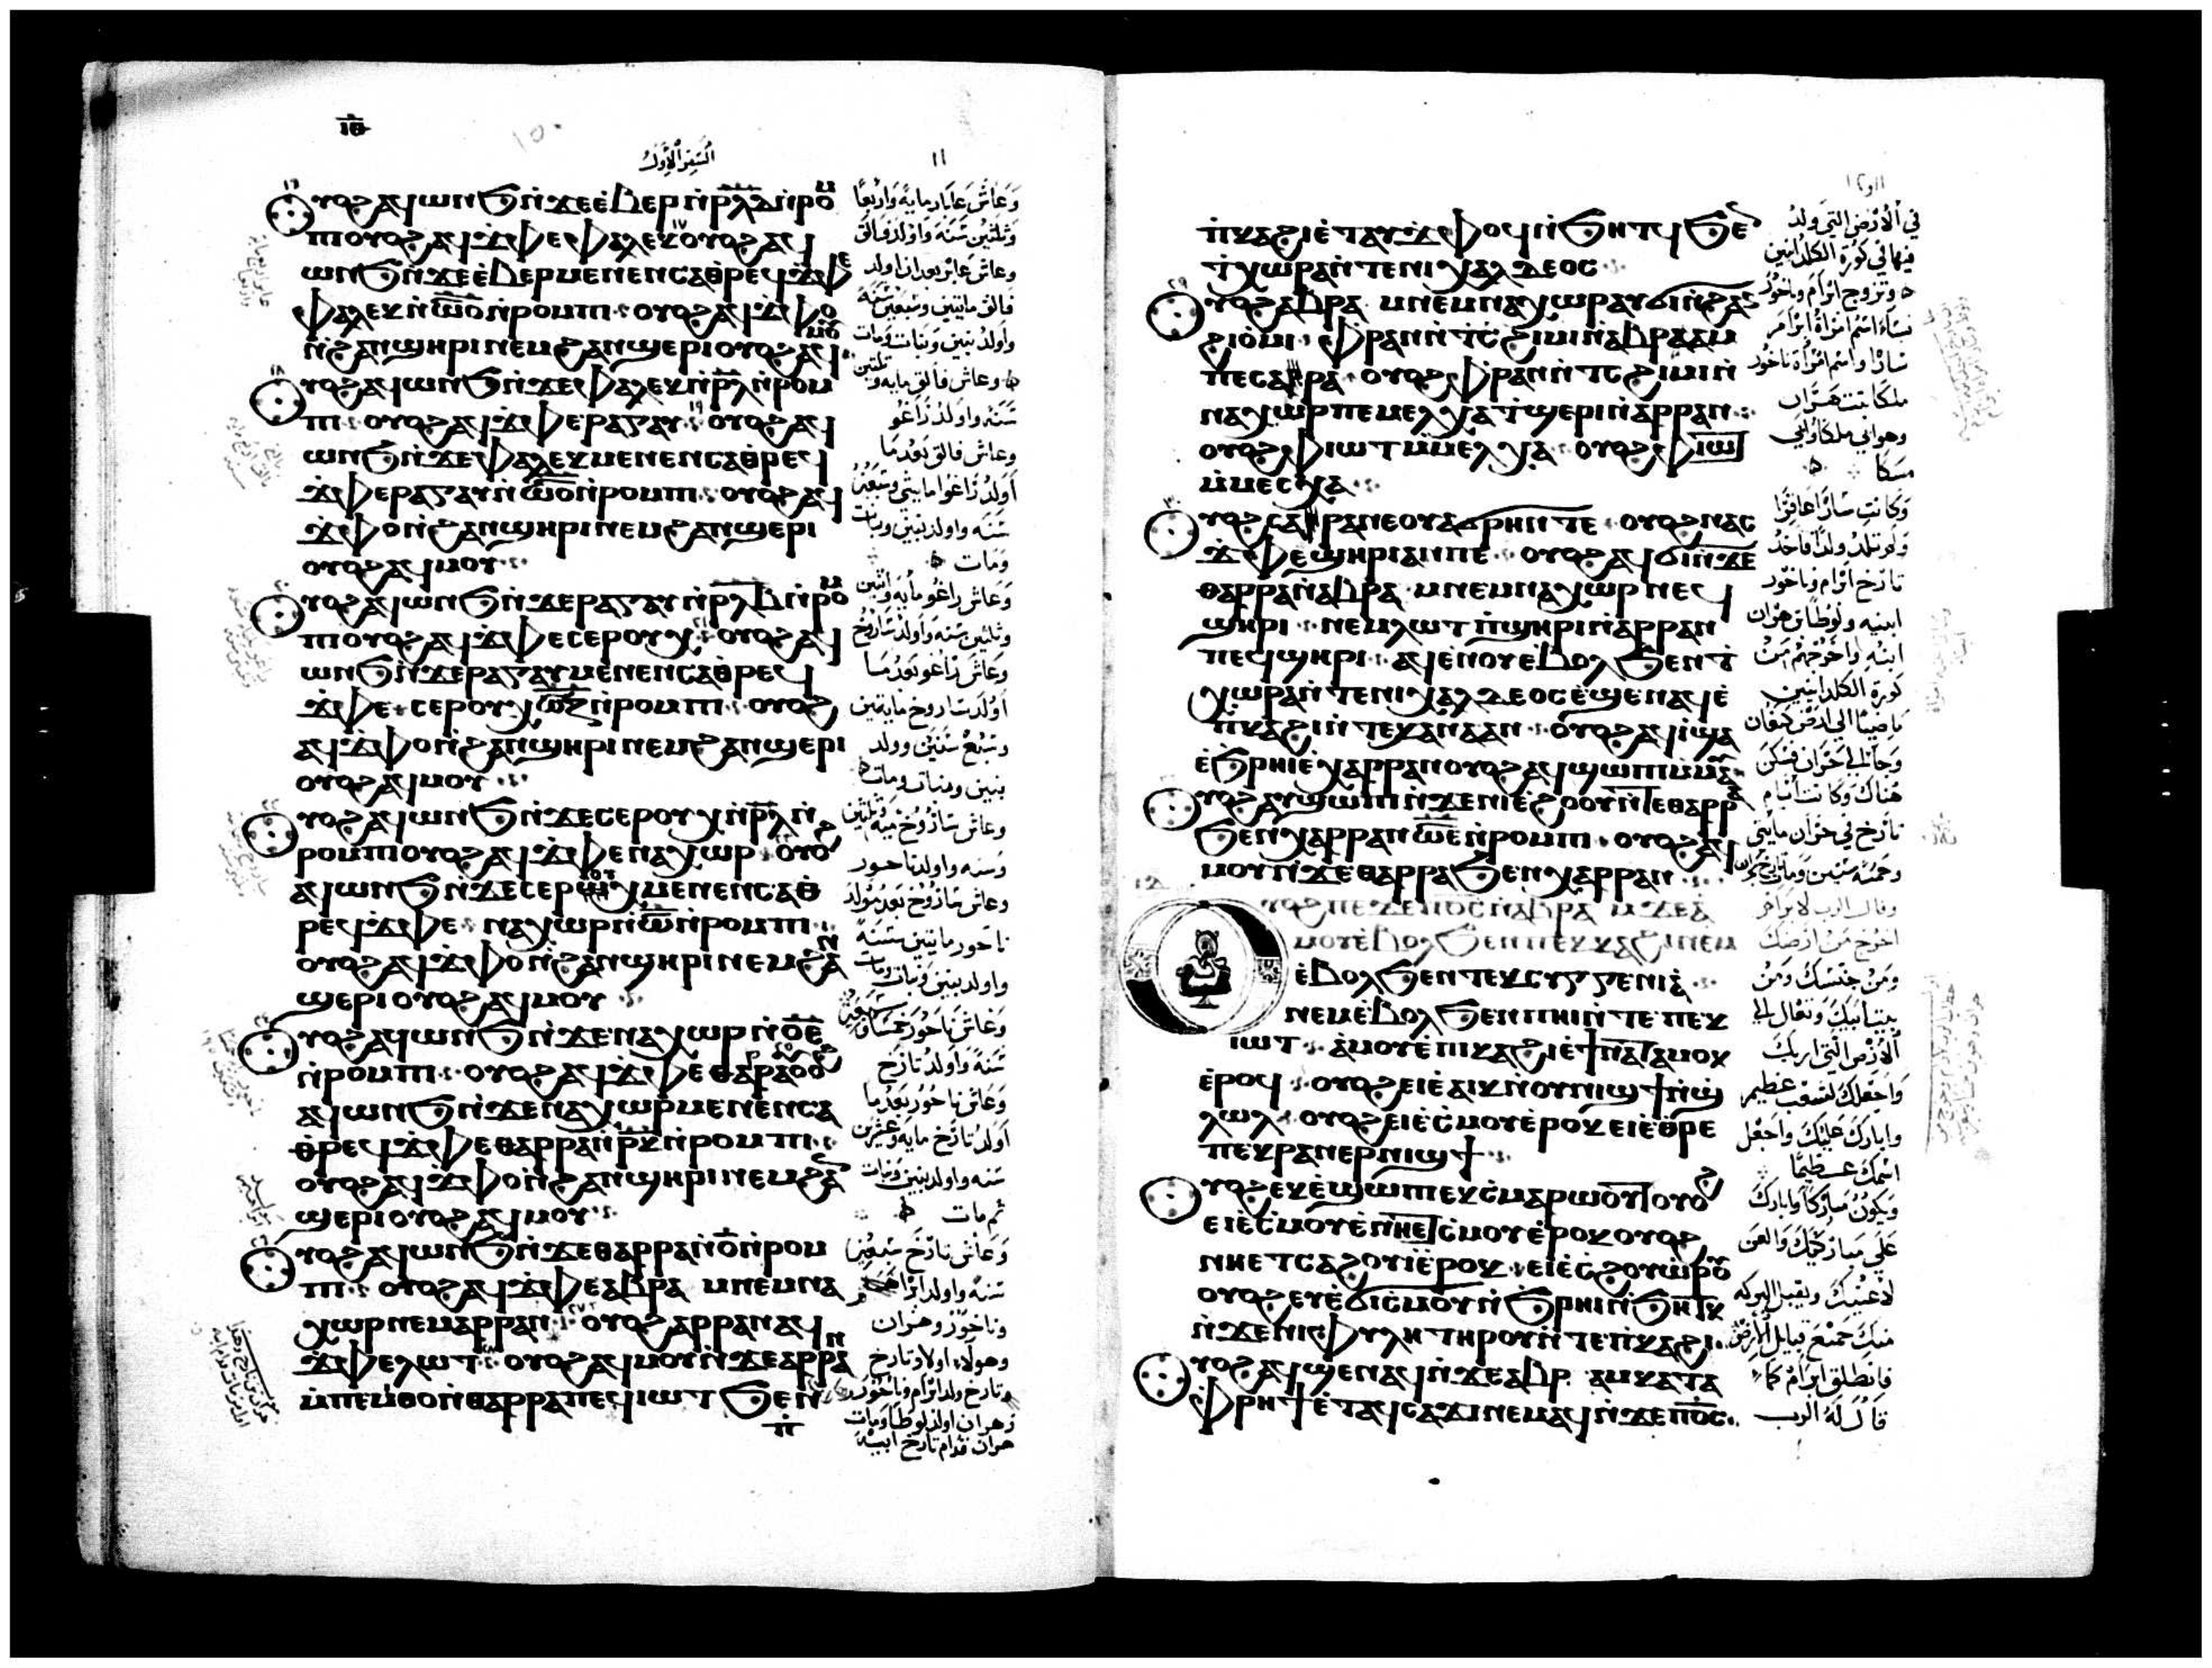 ⲓ̅ⲑ̅
السفر الاول
١١
ⲟⲩⲟϩ ⲁϥⲱⲛϧ ⲛ̇ϫⲉ ⲉ̇ⲃⲉⲣ ⲛ̇ⲣ̅ⲗ̅ⲇ̅ ⲛ̇ⲣⲟⲙ
ⲡⲓ ⲟⲩⲟϩ ⲁϥϫ̇ⲫⲉ ⲫⲁⲗⲉⲕ ⲟⲩⲟϩ ⲁϥ
ⲱⲛϧ ⲛ̇ϫⲉ ⲉ̇ⲃⲉⲣ ⲙⲉⲛⲉⲛⲥⲁ ⲑⲣⲉϥϫ̇ⲫⲉ
ⲫⲁⲗⲉⲕ ⲛ̇ⲥ̅ⲟ̅ ⲛ̇ⲣⲟⲙⲡⲓ ⲟⲩⲟϩ ⲁϥϫ̇ⲫⲟ
ⲛ̇ϩⲁⲛϣⲏⲣⲓ ⲛⲉⲙ ϩⲁⲛϣⲉⲣⲓ ⲟⲩⲟϩ ⲁϥⲙⲟⲩ
ⲟⲩⲟϩ ⲁϥⲱⲛϧ ⲛ̇ϫⲉ ⲫⲁⲗⲉⲕ ⲛ̇ⲣ̅ⲗ̅ ⲛ̇ⲣⲟⲙ
ⲡⲓ ⲟⲩⲟϩ ⲁϥϫ̇ⲫⲉ ⲣⲁⲅⲁⲩ ⲟⲩⲟϩ ⲁϥ
ⲱⲛϧ ⲛ̇ϫⲉ ⲫⲁⲗⲉⲕ ⲙⲉⲛⲉⲛⲥⲁ ⲑⲣⲉϥ
ϫ̇ⲫⲉ ⲣⲁⲅⲁⲩ ⲛ̇ⲥ̅ⲟ̅ ⲛ̇ⲣⲟⲙⲡⲓ ⲟⲩⲟϩ ⲁϥ
ϫ̇ⲫⲟ ⲛ̇ϩⲁⲛϣⲏⲣⲓ ⲛⲉⲙ ϩⲁⲛϣⲉⲣⲓ
ⲟⲩⲟϩ ⲁϥⲙⲟⲩ
ⲟⲩⲟϩ ⲁϥⲱⲛϧ ⲛ̇ϫⲉ ⲣⲁⲅⲁⲩ ⲛ̇ⲣ̅ⲗ̅ⲃ̅ ⲛ̇ⲣⲟⲙ
ⲡⲓ ⲟⲩⲟϩ ⲁϥϫ̇ⲫⲉ ⲥⲉⲣⲟⲩⲭ ⲟⲩⲟϩ ⲁϥ
ⲱⲛϧ ⲛ̇ϫⲉ ⲣⲁⲅⲁⲩ ⲙⲉⲛⲉⲛⲥⲁ ⲑⲣⲉϥ
ϫ̇ⲫⲉ ⲥⲉⲣⲟⲩⲭ ⲥ̅ⲍ̅ ⲛ̇ⲣⲟⲙⲡⲓ ⲟⲩⲟϩ
ⲁϥϫ̇ⲫⲟ ⲛ̇ϩⲁⲛϣⲏⲣⲓ ⲛⲉⲙ ϩⲁⲛϣⲉⲣⲓ
ⲟⲩⲟϩ ⲁϥⲙⲟⲩ
ⲟⲩⲟϩ ⲁϥⲱⲛϧ ⲛ̇ϫⲉ ⲥⲉⲣⲟⲩⲭ ⲛ̇ⲣ̅ⲗ̅ ⲛ̇
ⲣⲟⲙⲡⲓ ⲟⲩⲟϩ ⲁϥϫ̇ⲫⲉ ⲛⲁⲭⲱⲣ ⲟⲩⲟϩ
ⲁϥⲱⲛϧ ⲛ̇ϫⲉ ⲥⲉⲣⲟⲩⲭ ⲙⲉⲛⲉⲛⲥⲁ ⲑ
ⲣⲉϥϫ̇ⲫⲉ ⲛⲁⲭⲱⲣ ⲛ̇ⲥ̅ ⲛ̇ⲣⲟⲙⲡⲓ
ⲟⲩⲟϩ ⲁϥϫ̇ⲫⲟ ⲛ̇ϩⲁⲛϣⲏⲣⲓ ⲛⲉⲙ ϩⲁⲛ
ϣⲉⲣⲓ ⲟⲩⲟϩ ⲁϥⲙⲟⲩ
ⲟⲩⲟϩ ⲁϥⲱⲛϧ ⲛ̇ϫⲉ ⲛⲁⲭⲱⲣ ⲛ̇ⲟ̅ⲉ̅
ⲛ̇ⲣⲟⲙⲡⲓ ⲟⲩⲟϩ ⲁϥϫ̇ⲫⲉ ⲑⲁⲣⲣⲁ ⲟⲩⲟϩ
ⲁϥⲱⲛϧ ⲛ̇ϫⲉ ⲛⲁⲭⲱⲣ ⲙⲉⲛⲉⲛⲥⲁ
ⲑⲣⲉϥϫ̇ⲫⲉ ⲑⲁⲣⲣⲁ ⲛ̇ⲣ̅ⲕ̅ ⲛ̇ⲣⲟⲙⲡⲓ
ⲟⲩⲟϩ ⲁϥϫ̇ⲫⲟ ⲛ̇ϩⲁⲛϣⲏⲣⲓ ⲛⲉⲙ ϩⲁⲛ
ϣⲉⲣⲓ ⲟⲩⲟϩ ⲁϥⲙⲟⲩ
ⲟⲩⲟϩ ⲁϥⲱⲛϧ ⲛ̇ϫⲉ ⲑⲁⲣⲣⲁ ⲛ̇ⲟ̅ ⲛ̇ⲣⲟⲙ
ⲡⲓ ⲟⲩⲟϩ ⲁϥϫ̇ⲫⲉ ⲁⲃⲣⲁⲙ ⲛⲉⲙ ⲛⲁ
ⲭⲱⲣ ⲛⲉⲙ ⲁⲣⲣⲁⲛ ⲟⲩⲟϩ ⲁⲣⲣⲁⲛ ⲁϥ
ϫ̇ⲫⲉ ⲗⲱⲧ ⲟⲩⲟϩ ⲁϥⲙⲟⲩ ⲛ̇ϫⲉ ⲁⲣⲣⲁⲛ
ⲙ̇ⲡⲉⲙ̇ⲑⲟ ⲛ̇ⲑⲁⲣⲣⲁ ⲡⲉϥⲓⲱⲧ ϧⲉⲛ
وعاش عابار مايه واربعا
وثلثين سنه واولد فالق
وعاش عابر بعد ان اولد
فالق مايتين وسبعين سنه
واولد بنين وبنات ومات
وعاش فالق مايه وثلثين
سنه واولد راغو
وعاش فالق بعد ما
اولد راغوا مايتي وسبعين
سنه واولد بنين وبنات
ومات
وعاش راغو مايه واثنين
وثلثين سنه واولد شاروخ
وعاش راغو بعد ما
اولد شاروخ مايتين
وسبع سنين وولد
بنين وبنات ومات
وعاش شاروخ ميه وثلثين
وسنه واولد ناحور
وعاش شاروخ بعد مولد
ناحور مايتين سنه
واولد بنين وبنات ومات
وعاش ناحور خمسا وسبعين
سنة واولد تارح
وعاش ناحور بعد ما
اولد تارخ مايه وعشرين
سنه واولد بنين وبنات
ثم مات
وعاش تارخ سبعين
سنه واولد ابرام
وناخور وهران
وهولاء اولاد تارخ
تارخ ولد ابرام وناخور
وهران اولد لوطا ومات
هران قدام تارخ ابيه
ⲡ̇ⲕⲁϩⲓ ⲉ̇ⲧⲁⲩϫ̇ⲫⲟϥ ⲛ̇ϧⲏⲧϥ ϧⲉⲛ
ϯⲭⲱⲣⲁ ⲛ̇ⲧⲉ ⲛⲓⲭⲁⲗⲇⲉⲟⲥ
ⲟⲩⲟϩ ⲁⲃⲣⲁⲙ ⲛⲉⲙ ⲛⲁⲭⲱⲣ ⲁⲩϭⲓ ⲛ̇ϩⲁⲛ
ϩⲓⲟ̇ⲙⲓ ⲫ̇ⲣⲁⲛ ⲛ̇ⲧ̇ⲥϩⲓⲙⲓ ⲛ̇ⲁⲃⲣⲁⲁⲙ
ⲡⲉ ⲥⲁⲣⲣⲁ ⲟⲩⲟϩ ⲫ̇ⲣⲁⲛ ⲛ̇ⲧⲥϩⲓⲙⲓ ⲛ̇
ⲛⲁⲭⲱⲣ ⲡⲉ ⲙⲉⲗⲭⲁ ⲧ̇ϣⲉⲣⲓ ⲛ̇ⲁⲣⲣⲁⲛ
ⲟⲩⲟϩ ⲫ̇ⲓⲱⲧ ⲙ̇ⲙⲉⲗⲭⲁ ⲟⲩⲟϩ ⲫ̇ⲓⲱⲧ
ⲙ̇ⲙⲉⲥⲭⲁ
ⲟⲩⲟϩ ⲥⲁⲣⲣⲁ ⲛⲉ ⲟⲩⲁϭⲣⲏⲛ ⲧⲉ ⲟⲩⲟϩ ⲛⲁⲥ
ϫ̇ⲫⲉ ϣⲏⲣⲓ ⲁⲛ ⲡⲉ ⲟⲩⲟϩ ⲁϥϭⲓ ⲛ̇ϫⲉ
ⲑⲁⲣⲣⲁ ⲛ̇ⲁⲃⲣⲁⲙ ⲛⲉⲙ ⲛⲁⲭⲱⲣ ⲛⲉϥ
ϣⲏⲣⲓ ⲛⲉⲙ ⲗⲱⲧ ⲡ̇ϣⲏⲣⲓ ⲛ̇ⲁⲣⲣⲁⲛ
ⲡⲉϥϣⲏⲣⲓ ⲁϥⲉⲛⲟⲩ ⲉ̇ⲃⲟⲗ ϧⲉⲛ ϯ
ⲭⲱⲣⲁ ⲛ̇ⲧⲉ ⲛⲓⲭⲁⲗⲇⲉⲟⲥ ⲉ̇ϣⲉⲛⲁϥ ⲉ̇
ⲡ̇ⲕⲁϩⲓ ⲛ̇ⲧⲉ ⲭⲁⲛⲁⲁⲛ ⲟⲩⲟϩ ⲁϥⲓ̇ ϣⲁ
ⲉ̇ϧⲣⲏⲓ ⲉ̇ⲭⲁⲣⲣⲁⲛ ⲟⲩⲟϩ ⲁϥϣⲱⲡⲓ ⲙ̇ⲙⲁⲩ
ⲟⲩⲟϩ ⲁⲩϣⲱⲡⲓ ⲛ̇ϫⲉ ⲛⲓⲉ̇ϩⲟⲟⲩ ⲛ̇ⲧⲉ ⲑⲁⲣⲣⲁ
ϧⲉⲛ ⲭⲁⲣⲣⲁⲛ ⲥ̅ⲉ̅ ⲛ̇ⲣⲟⲙⲡⲓ ⲟⲩⲟϩ ⲁϥ
ⲙⲟⲩ ⲛ̇ϫⲉ ⲑⲁⲣⲣⲁ ϧⲉⲛ ⲭⲁⲣⲣⲁⲛ
ⲟⲩⲟϩ ⲡⲉϫⲉ ⲡ̅ⲟ̅ⲥ̅ ⲛ̇ⲁⲃⲣⲁⲙ ϫⲉ ⲁ̇
ⲙⲟⲩ ⲉ̇ⲃⲟⲗ ϧⲉⲛ ⲡⲉⲕⲕⲁϩⲓ ⲛⲉⲙ
ⲉ̇ⲃⲟⲗ ϧⲉⲛ ⲧⲉⲕⲥⲩⲅⲅⲉⲛⲓⲁ̇
ⲛⲉⲙ ⲉ̇ⲃⲟⲗ ϧⲉⲛ ⲡⲏⲓ ⲛ̇ⲧⲉ ⲡⲉⲕ
ⲓⲱⲧ ⲁ̇ⲙⲟⲩ ⲉ̇ⲡⲓⲕⲁϩⲓ ⲉ̇ϯⲛⲁⲧⲁⲙⲟⲕ
ⲉ̇ⲣⲟϥ ⲟⲩⲟϩ ⲉⲓⲉ̇ⲁⲓⲕ ⲛ̇ⲟⲩⲛⲓϣϯ ⲛ̇ϣ̇
ⲗⲱⲗ ⲟⲩⲟϩ ⲉⲓⲉ̇ⲥ̇ⲙⲟⲩ ⲉ̇ⲣⲟⲕ ⲉⲓⲉ̇ⲑⲣⲉ
ⲡⲉⲕⲣⲁⲛ ⲉⲣⲛⲓϣϯ
ⲟⲩⲟϩ ⲉⲕⲉ̇ϣⲱⲡⲓ ⲉⲕⲥ̇ⲙⲁⲣⲱⲟⲩⲧ ⲟⲩⲟϩ
ⲉⲓⲉ̇ⲥ̇ⲙⲟⲩ ⲉ̇ⲛⲏⲉⲧⲥ̇ⲙⲟⲩ ⲉ̇ⲣⲟⲕ ⲟⲩⲟϩ
ⲛⲏⲉⲧⲥⲁϩⲟⲩⲓ̇ ⲉ̇ⲣⲟⲕ ⲉⲓⲉ̇ⲥϩⲟⲩⲱⲣⲟⲩ
ⲟⲩⲟϩ ⲉⲩⲉ̇ϭⲓⲥ̇ⲙⲟⲩ ⲛ̇ϧⲣⲏⲓ ⲛ̇ϧⲏⲧⲕ
ⲛ̇ϫⲉ ⲛⲓⲫⲩⲗⲏ ⲧⲏⲣⲟⲩ ⲛ̇ⲧⲉ ⲡ̇ⲕⲁϩⲓ
ⲟⲩⲟϩ ⲁϥϣⲉⲛⲁϥ ⲛ̇ϫⲉ ⲁⲃⲣⲁⲙ ⲕⲁⲧⲁ
ⲫ̇ⲣⲏϯ ⲉ̇ⲧⲁϥⲥⲁϫⲓ ⲛⲉⲙⲁϥ ⲛ̇ϫⲉ ⲡ̅ⲟ̅ⲥ̅
في الارض التي ولد
فيها في كورة الكلدانيين
وتزوج ابرام وناخور
نساء اسم امراة ابرام
سارا واسم امراة ناخور
ملكا بنت هران
وهو ابي ملكا وابي
سكا
وكانت سارا عاقرا
ولم تلد ولدا فاخد
تارخ ابرام وناخور
ابنيه ولوطا بن هران
ابنه واخرجهم من
كورة الكلدانيين
ماضيا الي ارض كنعان
وجا الي حران فسكن
هناك وكانت ايام
تارخ في حران مايتي
وخمسه سنين ومات تارخ بحران
وقال الرب لابرام
اخرج من ارضك
ومن جنسك ومن
بيت ابيك وتعال الي
الارض التي اريك
واجعلك لشعب عظيم
وابارك عليك واجعل
اسمك عظيما
ويكون مباركا وابارك
علي مباركيك والعن
لاعنيك ويقبل البركه
منك جميع قبايل الارض
فانطلق ابرام كما
قال له الرب